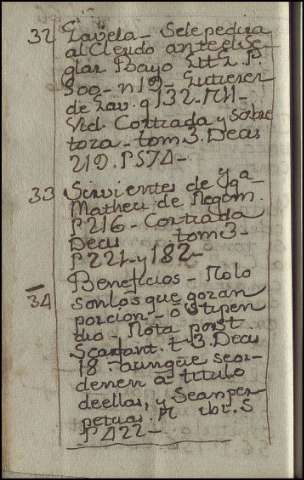 32 Gavela - Se le pedira
al Clerico ante el Se-
glar Bayo lit. 2. P
300 - n 19 - Gutierrez
de Gav. q 132. NII -
Vid. Cortiada y sobre
tora - tom 3. Decis
219. P 574 -
33 Sirvientes de Yga
Matheu de Regim.
P 216 - Cortiada
Decis tom 3 -
P 221 - y 182 -
34 Beneficios - No lo
son los que gozan
porcion - o stipen
dio - Nota post
Scarfant. t. 3. Decis
18. aunque se or-
denen a titulo
de ellas, y sean per-
petuas. ibi. S
P 422 -